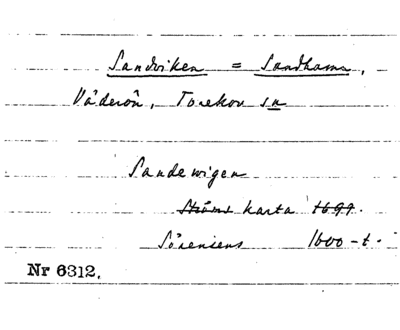 Sandviken = Sandhamn,
Väderön, Torekov sn
Sandewigen
Ströms karta 1699.
Sörensens 1600-t.
Nr 6312.